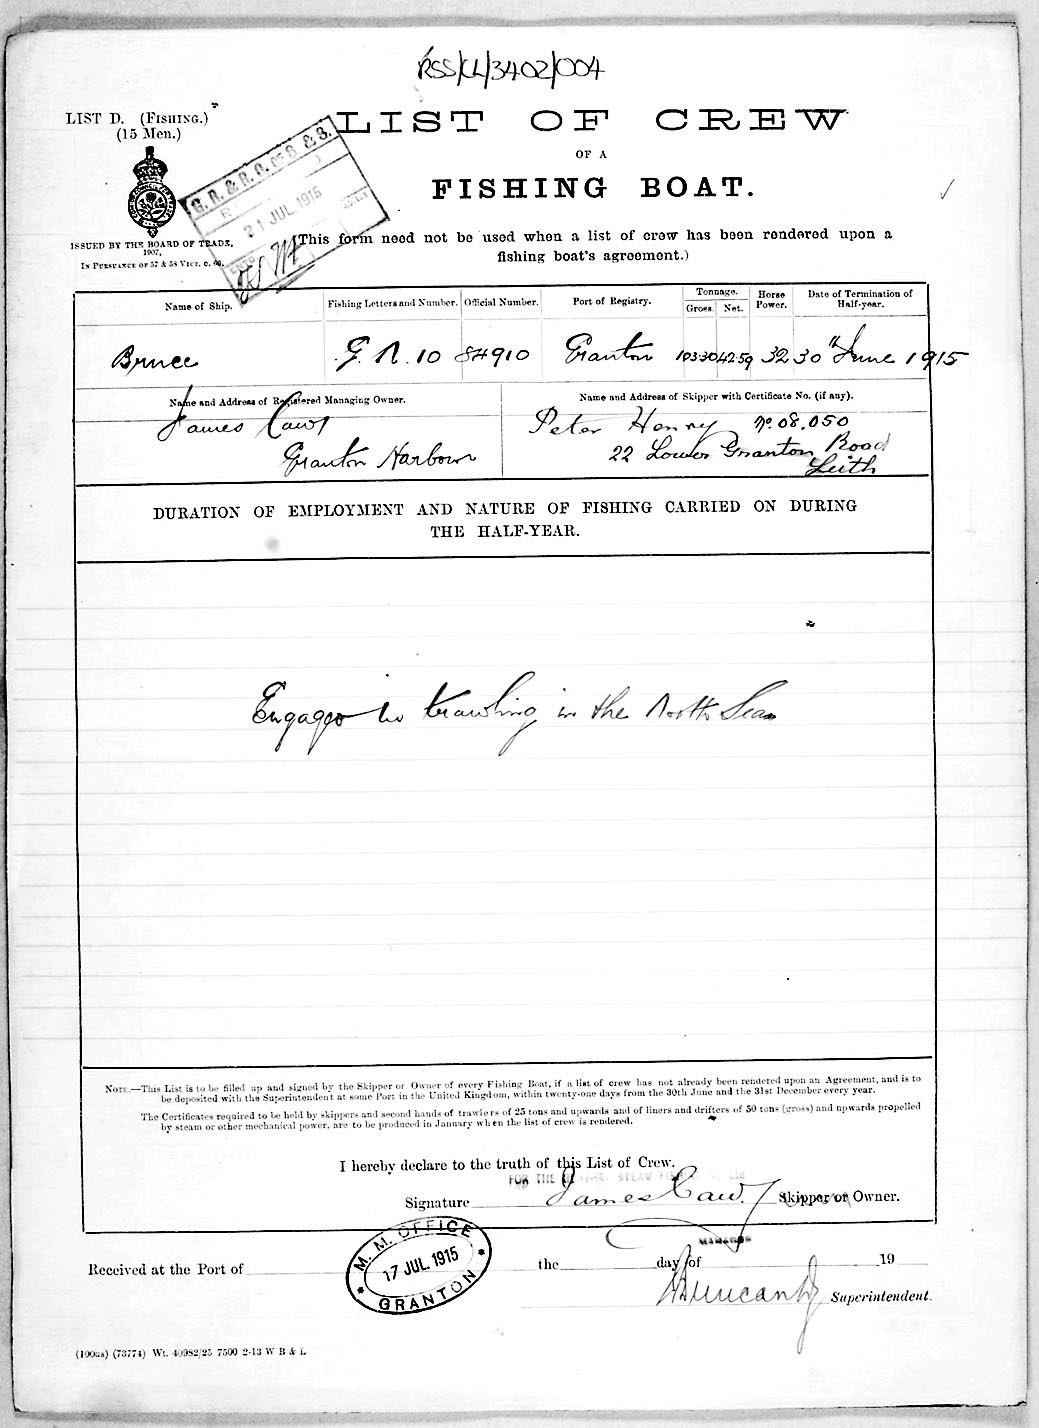 RSS/CL/3402/004
LIST D. (FISHING.)
(15 Men.)
LIST OF CREW
OF A
FISHING BOAT.
G. R. & R. O. OF S & S.
21 JUL 1915
ISSUED BY THE BOARD OF TRADE,
1907,
IN PURSUANCE OF 57 & 58 VICT. C. 60.
(This form need not be used when a list of crew has been rendered upon a
fishing boat's agreement.)
Name of Ship. Fishing Letters and Number. Official Number. Port of Registry. Tonnage. Gross. Net. Horse Power. Date of Termination of Half-year.
Bruce G.N. 10 84910 Granton 103.30 42.59 32 30th June 1915
Name and Address of Registered Managing Owner. Name and Address of Skipper with Certificate No. (if any).
James Caw Peter Henry No. 08.050
Granton Harbour 22 Lower Granton Road
Leith
DURATION OF EMPLOYMENT AND NATURE OF FISHING CARRIED ON DURING
THE HALF-YEAR.
Engaged in trawling in the North Sea
NOTE.—This List is to be filled up and signed by the Skipper or Owner of every Fishing Boat, if a list of crew has not already been rendered upon an Agreement, and is to
be deposited with the Superintendent at some Port in the United Kingdom, within twenty-one days from the 30th June and the 31st December every year.
The Certificates required to be held by skippers and second hands of trawlers of 25 tons and upwards and of liners and drifters of 50 tons (gross) and upwards propelled
by steam or other mechanical power, are to be produced in January when the list of crew is rendered.
I hereby declare to the truth of this List of Crew.
FOR THE STEAM
Signature James Caw Skipper or Owner.
MANAGER
M. M. OFFICE
17 JUL. 1915
GRANTON
Received at the Port of the day of 19
Superintendent.
(10908) (73774) Wt. 40982/25 7500 2-13 W B & L